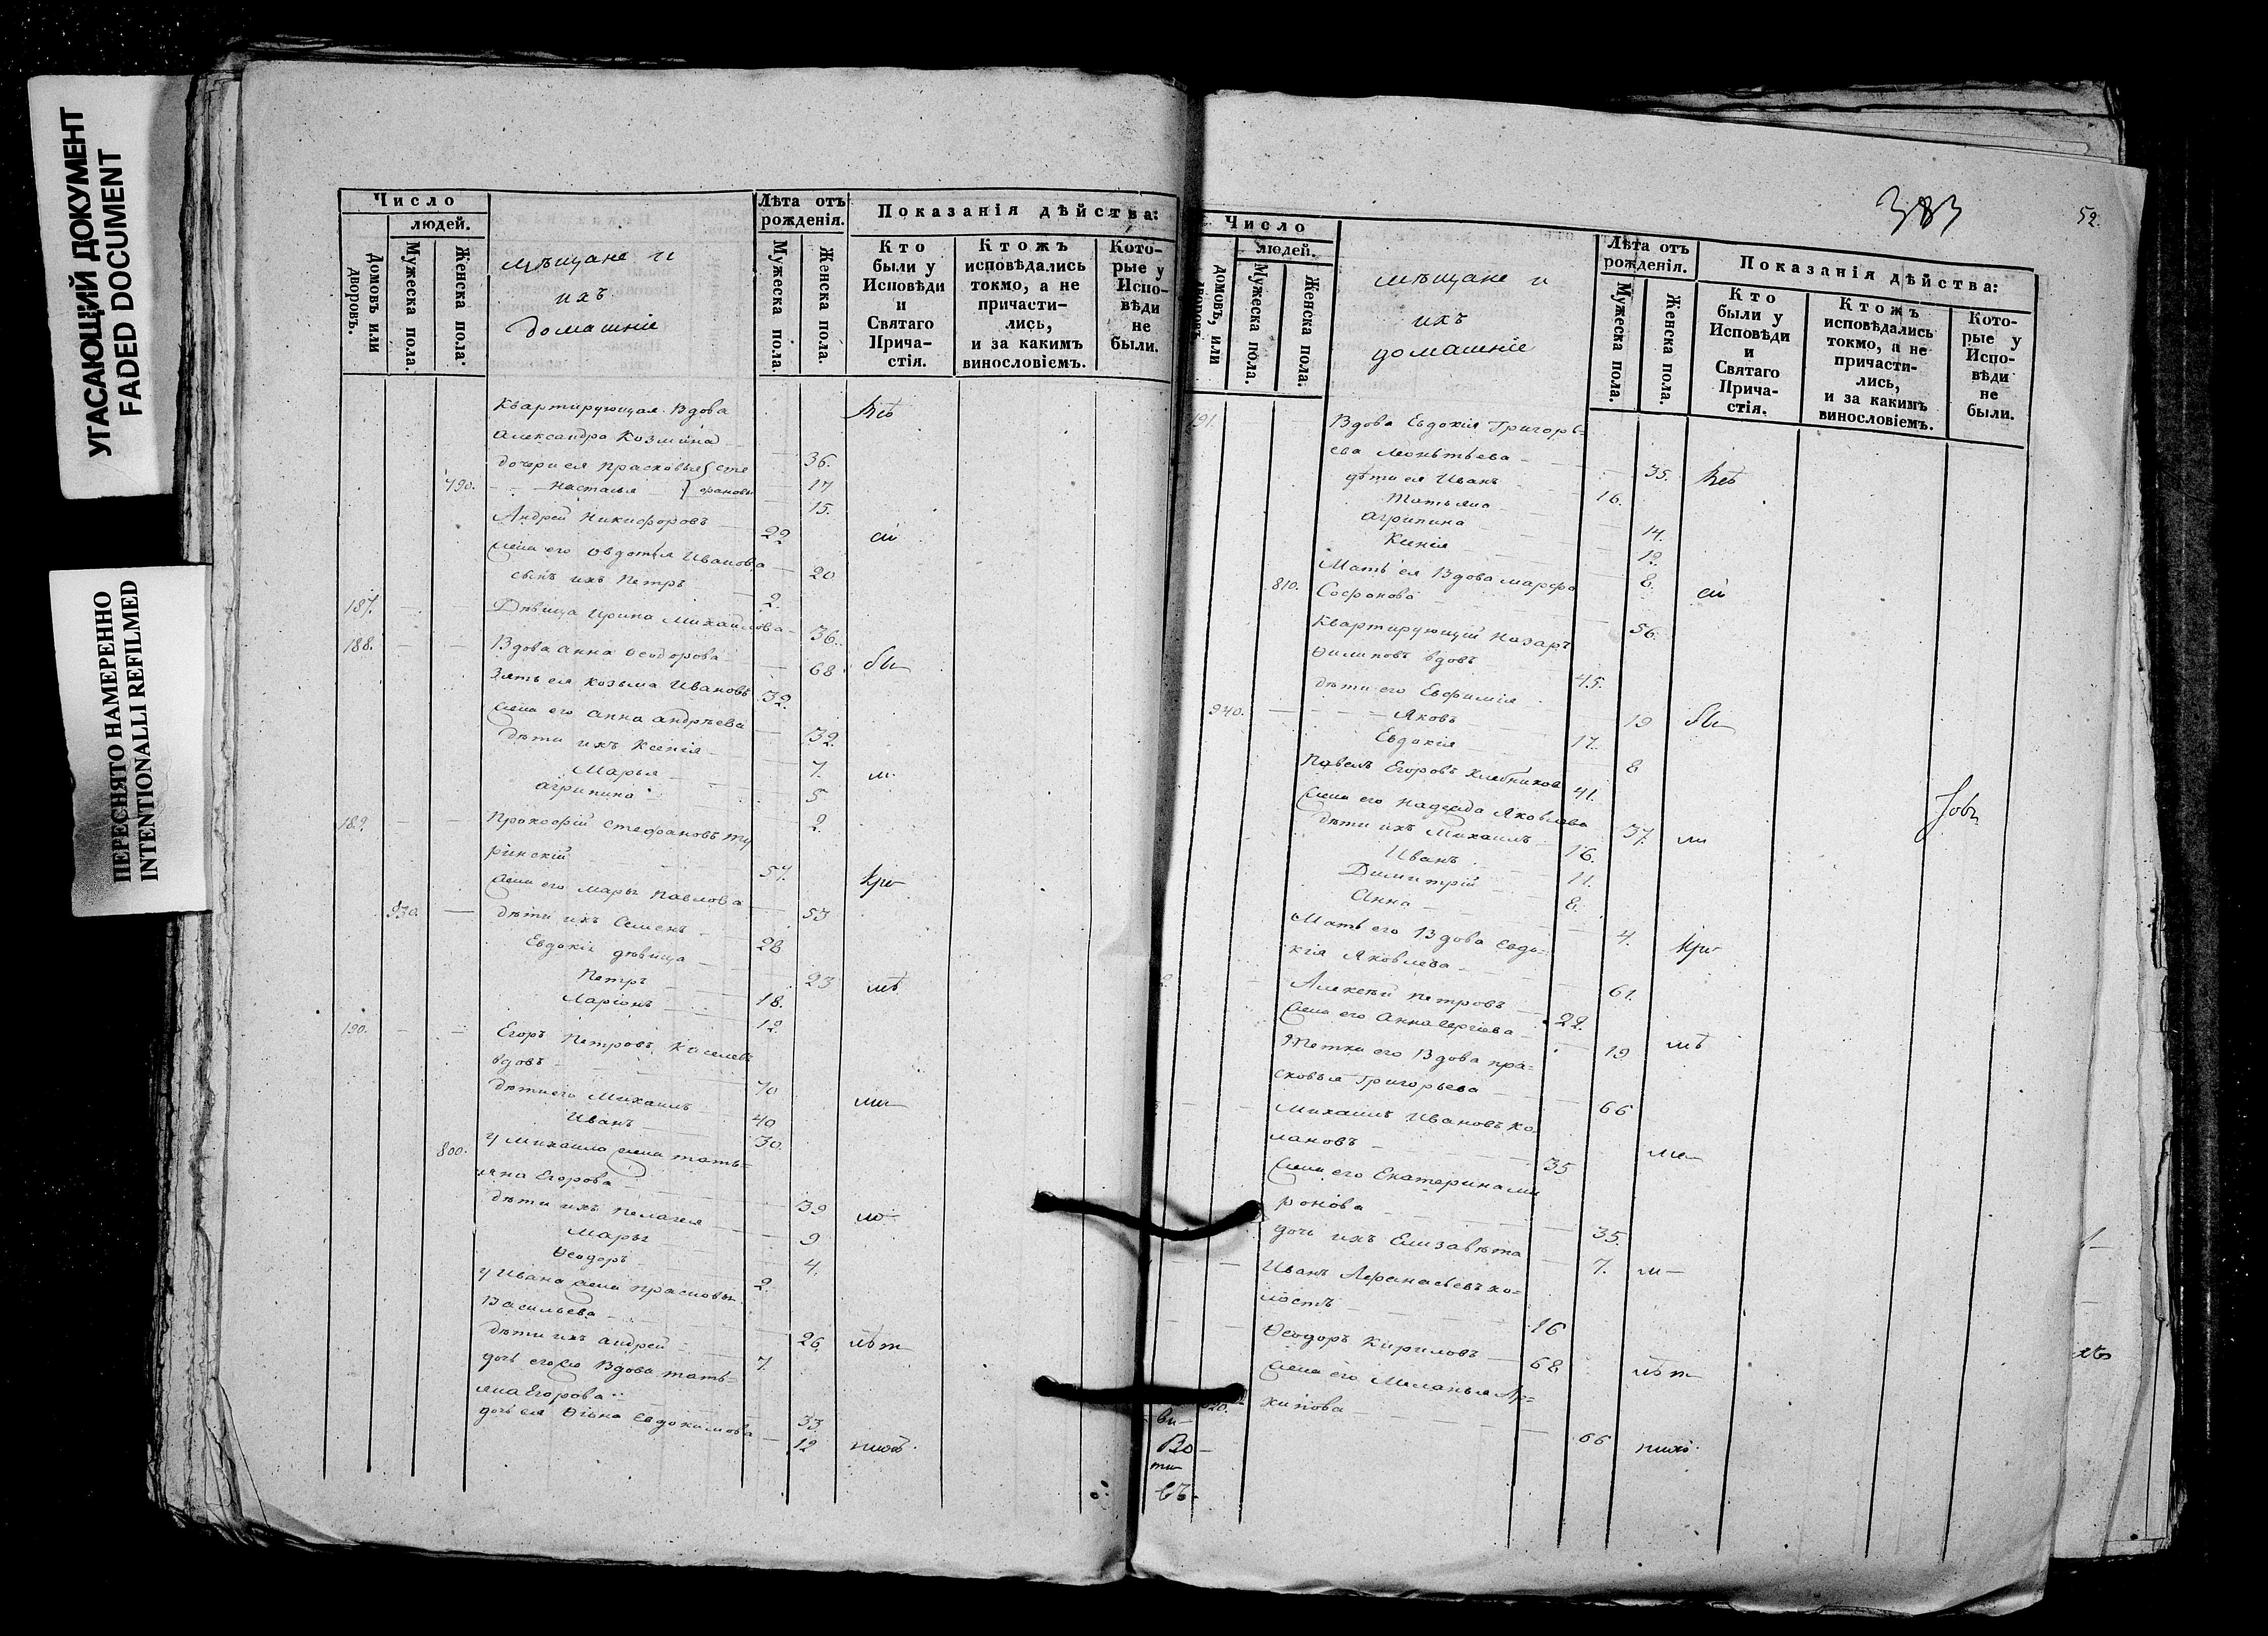 УГАСАЮЩИЙ ДОКУМЕНТ
FADED DOCUMENT
ПЕРЕСНЯТО НАМЕРЕННО
INTENTIONALLI REFILMED
Число
людей.
Домовъ или дворовъ.
Мужеска пола.
Женска пола.
мѣщане и
ихъ
домашніе
Лѣта отъ
рожденія.
Мужеска пола.
Женска пола.
Показанія дѣйства:
Кто
были у
Исповѣди
и
Святаго
Прича-
стія.
Ктожъ
исповѣдались
токмо, а не
причасти-
лись,
и за какимъ
винословіемъ.
Кото-
рые у
Испо-
вѣди
не
были.
Квартирующая Вдова
Александра Козмина 36.
дочери ея Прасковья 17
790. Настасья 15.
Андрей Никифоровъ 22
жена его Овдотья Иванова 20
сынъ ихъ Петръ 2.
187. Дѣвица Ирина Михаилова 36.
188. Вдова Анна Ѳеодорова 68
Зять ея Козьма Ивановъ 32.
жена его Анна Андрѣева 32.
дѣти ихъ Ксенія 7.
Марья 5
Агрипина 2.
189. Прокофій Стефановъ Ту
ринскій 57.
жена его Марья Павлова 53
930. дѣти ихъ Семенъ 28
Евдокія дѣвица 23
Петръ 18.
Ларіонъ 12
190. Егоръ Петровъ Киселевъ
вдовъ 70
дѣти его Михаилъ 40
Иванъ 30.
800. у Михаила жена Тать-
яна Егорова 39
дѣти ихъ Пелагея 9
Марья 4.
Ѳеодоръ 2.
у Ивана жена Прасковья
Васильева 26.
дѣти ихъ Андрей 7.
Вдова Тать-
яна Егорова 33.
дочь ея Евдокимова 12
383
52
Число
людей.
Домовъ, или дворовъ.
Мужеска пола.
Женска пола.
мѣщане и
ихъ
домашніе
Лѣта отъ
рожденія.
Мужеска пола.
Женска пола.
Показанія дѣйства:
Кто
были у
Исповѣди
и
Святаго
Прича-
стія.
Ктожъ
исповѣдались
токмо, а не
причасти-
лись,
и за какимъ
винословіемъ.
Кото-
рые у
Испо-
вѣди
не
были.
191. Вдова Евдокія Григорь-
ева Леонтьева 35.
дѣти ея Иванъ 16.
Татьяна 14.
Агрипина 12.
Ксенія 8.
Мать ея Вдова Марфа
810. Софонова 56.
Квартирующій Назаръ
Филиповъ вдовъ 45.
дѣти его Евфимія 19
940. Яковъ 17.
Евдокія 8
Павелъ Егоровъ Хлебников 41.
жена его Надежда Яковлева 37.
дѣти ихъ Михаилъ 16.
Иванъ 11.
Димитрій 8.
Анна 4.
Мать его Вдова Евдо-
кія Яковлева 61.
Алексѣй Петровъ 22.
жена его Анна Сергіева 19
Тетка его Вдова Пра-
сковья Григорьева 66
Михаилъ Ивановъ Ка
лановъ 35
жена его Екатерина Ми
ронова 35.
дочь ихъ Елизавѣта 7.
Иванъ Афанасьевъ хо-
лостъ 16
Ѳеодоръ Кириловъ 68
жена его Меланья Ар-
хипова 66